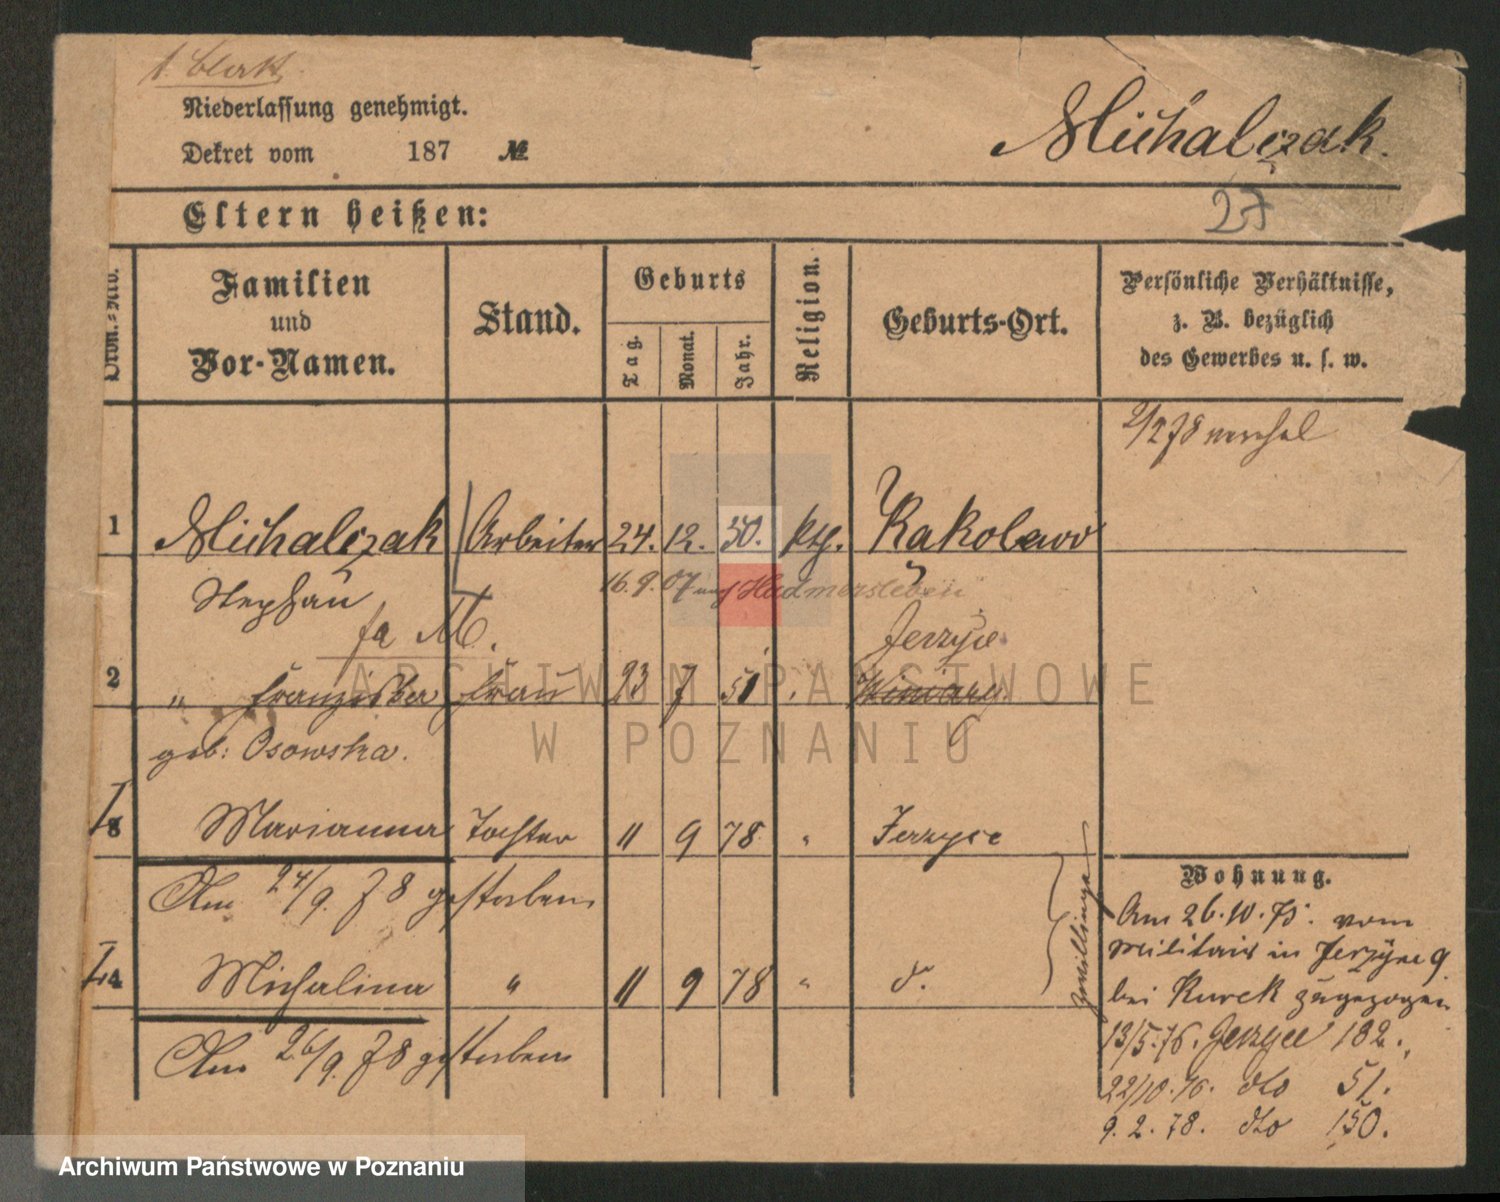 1. Blatt
Niederlassung genehmigt.
Dekret vom 187 №
Michalczak.
Eltern heißen:
27
Ordn.-Nro.
Familien
und
Vor-Namen.
Stand.
Geburts
Tag.
Monat.
Jahr.
Religion.
Geburts-Ort.
Persönliche Verhältnisse,
z. B. bezüglich
des Gewerbes u. s. w.
2/2 78
1 Michalczak Arbeiter 24. 12. 50. kth. Kakolewo
Stephan
16.9.07 nach Hadmersleben
fa M.
Jerzyce
2 " Franziska Frau 23 7 51 Winiary
geb: Osowska.
3 Marianna Tochter 11 9 78 " Jerzyce
Am 24/9. 78 gestorben
Zwillinge
4 Michalina " 11 9 78 " d.
Am 26/9. 78 gestorben
Wohnung.
Am 26.10.75. vom
Militair in Jerzyce 9
bei Kurek zugezogen
13/5.76. Jerzyce 182.
22/10.76. dto 51.
9. 2. 78. dto 150.
ARCHIWUM PAŃSTWOWE
W POZNANIU
Archiwum Państwowe w Poznaniu